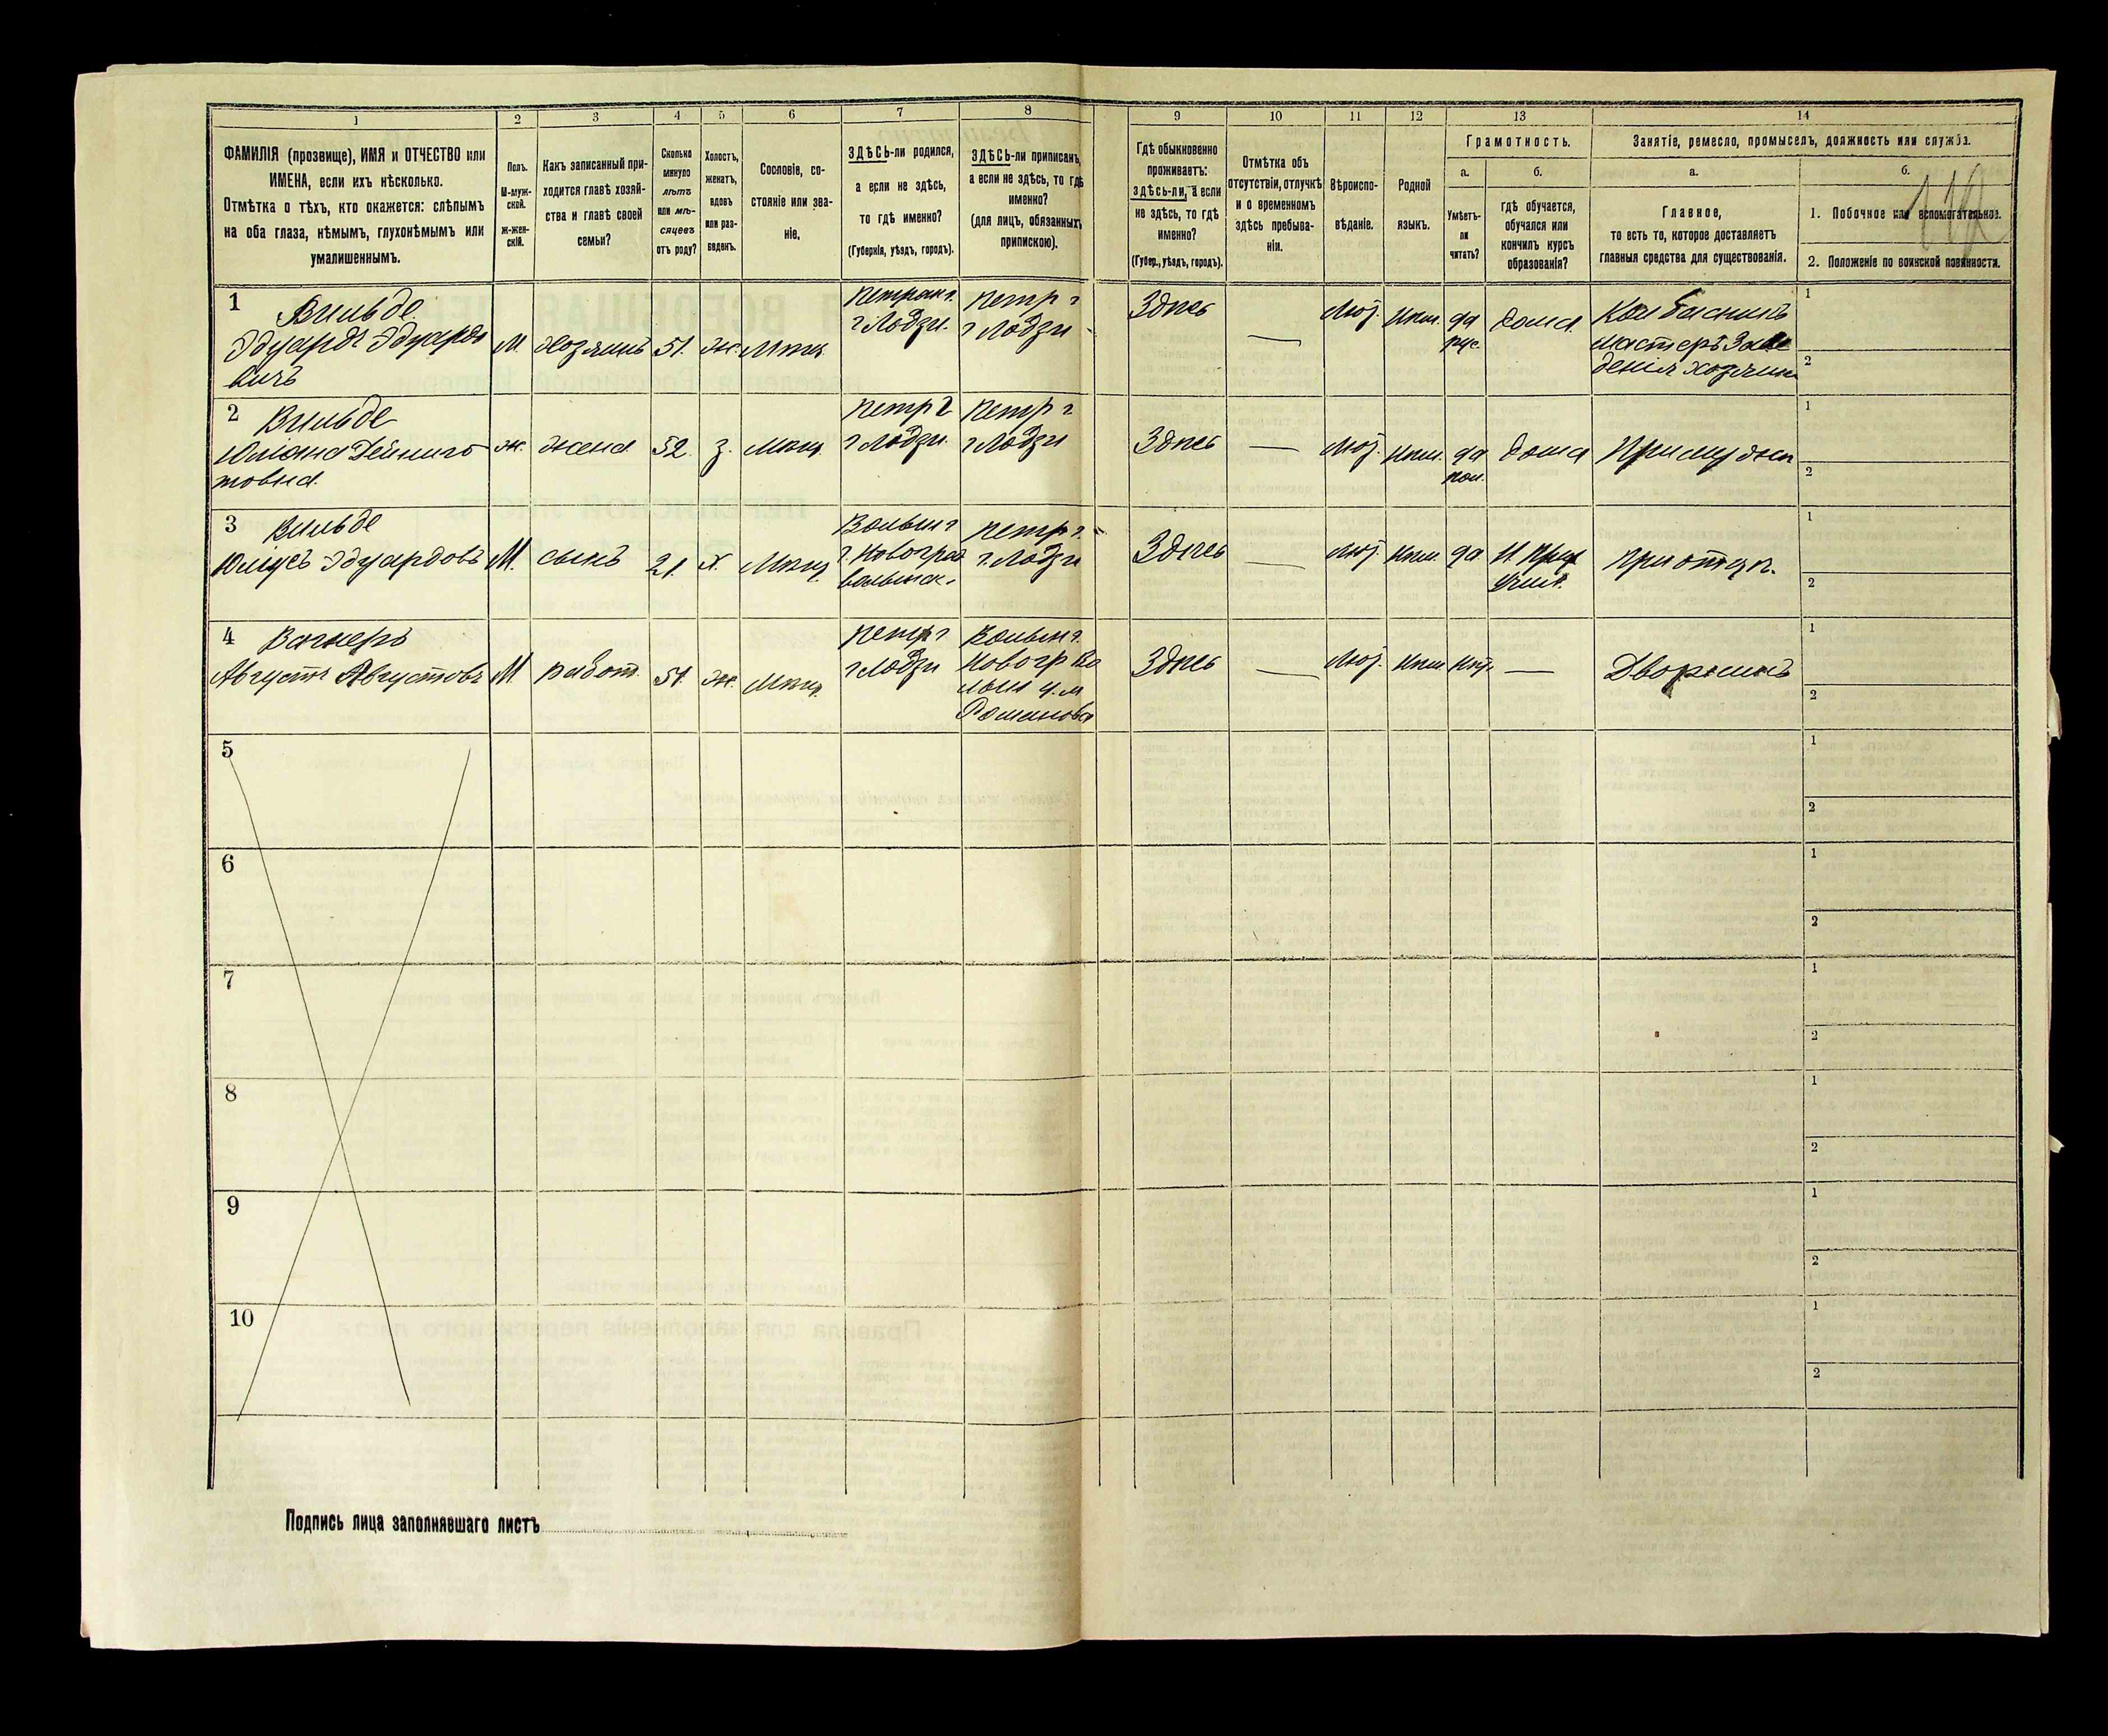 1 2 3 4 5 6 7 8 9 10 11 12 13 14
ФАМИЛІЯ (прозвище), ИМЯ и ОТЧЕСТВО или
ИМЕНА, если ихъ нѣсколько.
Отмѣтка о тѣхъ, кто окажется: слѣпымъ
на оба глаза, нѣмымъ, глухонѣмымъ или
умалишеннымъ.
Полъ.
М-муж-
ской.
Ж-жен-
скій.
Какъ записанный при-
ходится главѣ хозяй-
ства и главѣ своей
семьи?
Сколько
минуло
лѣтъ
или мѣ-
сяцевъ
отъ роду?
Холостъ,
женатъ,
вдовъ
или раз-
веденъ.
Сословіе, со-
стояніе или зва-
ніе.
ЗДѢСЬ-ли родился,
а если не здѣсь,
то гдѣ именно?
(Губернія, уѣздъ, городъ).
ЗДѢСЬ-ли приписанъ,
а если не здѣсь, то гдѣ
именно?
(для лицъ, обязанныхъ
припискою).
Гдѣ обыкновенно
проживаетъ:
здѣсь-ли, а если
не здѣсь, то гдѣ
именно?
(Губер., уѣздъ, городъ).
Отмѣтка объ
отсутствіи, отлучкѣ
и о временномъ
здѣсь пребыва-
ніи.
Вѣроиспо-
вѣданіе.
Родной
языкъ.
Грамотность.
а.
Умѣетъ-
ли
читать?
б.
гдѣ обучается,
обучался или
кончилъ курсъ
образованія?
Занятіе, ремесло, промыселъ, должность или служба.
а.
Главное,
то есть то, которое доставляетъ
главныя средства для существованія.
б.
1. Побочное или вспомогательное.
2. Положеніе по воинской повинности.
1 Вильде
Эдуардъ Эдуардо
вичъ
М.
хозяинъ
51.
ж.
Мѣщ.
г Лодзи.
Петр г
г Лодзи
Здѣсь
—
Лют.
Нѣм.
да
рус.
дома
Колбасникъ
мастеръ Заве
денія хозяинъ
1
2
2 Вильде
товна
ж.
жена
52.
з.
Мѣщ.
Петр г
г Лодзи.
Петр г
г Лодзи
Здѣсь
—
Лют.
Нѣм.
да
пол.
дома
При мужѣ
1
2
3 Вильде
Юліусъ Эдуардовъ
М.
сынъ
21.
х.
Мѣщ.
Волын г
г. Новоград
волынск.
Петр г.
г. Лодзи
Здѣсь
—
Лют.
Нѣм.
да
При отцѣ.
1
2
4 Вагнеръ
Августъ Августовъ
М
работ.
51.
ж.
Мѣщ.
Петр г
г Лодзи
Волын г.
Новогр Во
лын у. м
Романовка
Здѣсь
—
Лют.
Нѣм
нѣт.
—
Дворникъ
1
2
5
1
2
6
1
2
7
1
2
8
1
2
9
1
2
10
1
2
Подпись лица заполнявшаго листъ